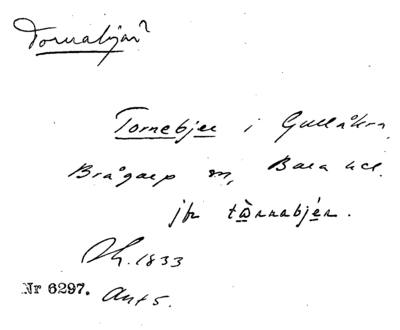 Tornabjär?
Tornebjer i Gullåkra
Brågarp sn, Bara hd.
jfr tɷ̀rnabjér.
Sk. 1833
Nr 6297. Ant 5.